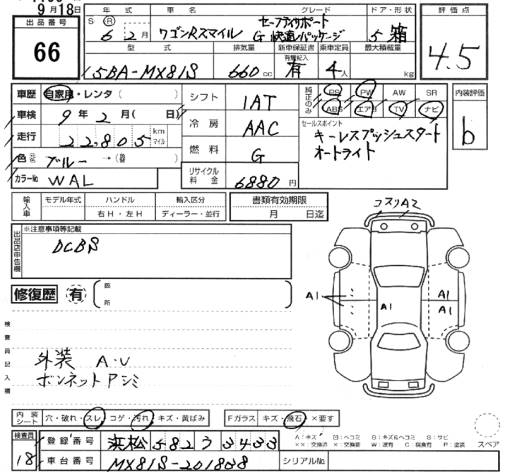 9月18日
出品番号 66
年式 車名 グレード ドア・形状 評価点
S R 6年 2月 ワゴンRスマイル セーフティサポート
G 快適パッケージ 5 箱 4.5
型式 排気量 新車保証書 乗車定員 最大積載量
5BA-MX81S 660cc 有 4人 kg
車歴 自家用・レンタ( )
車検 9年 2月( 日)
走行 22,805 km マイル
色 ブルー →( )
カラーNo WAL
シフト IAT
冷房 AAC
燃料 G
リサイクル料金 6880円
純正のみ PS PW AW SR
ABS エアB TV ナビ
セールスポイント
キーレスプッシュスタート
オートライト
内装評価 b
輸入車 モデル年式 ハンドル 輸入区分 書類有効期限
右H・左H ディーラー・並行 月 日迄
※注意事項等記載
DCBS
修復歴 有 箇所
コスリA2
A1 A1 A1
検査員記入欄
外装 A・U
ボンネットPシミ
内装シート 穴・破れ・スレ コゲ・汚れ・キズ・黄ばみ Fガラス キズ・飛石・×要す
スペア
検査員 18
登録番号 浜松582う3433
車台番号 MX81S-201838 シリアルNo